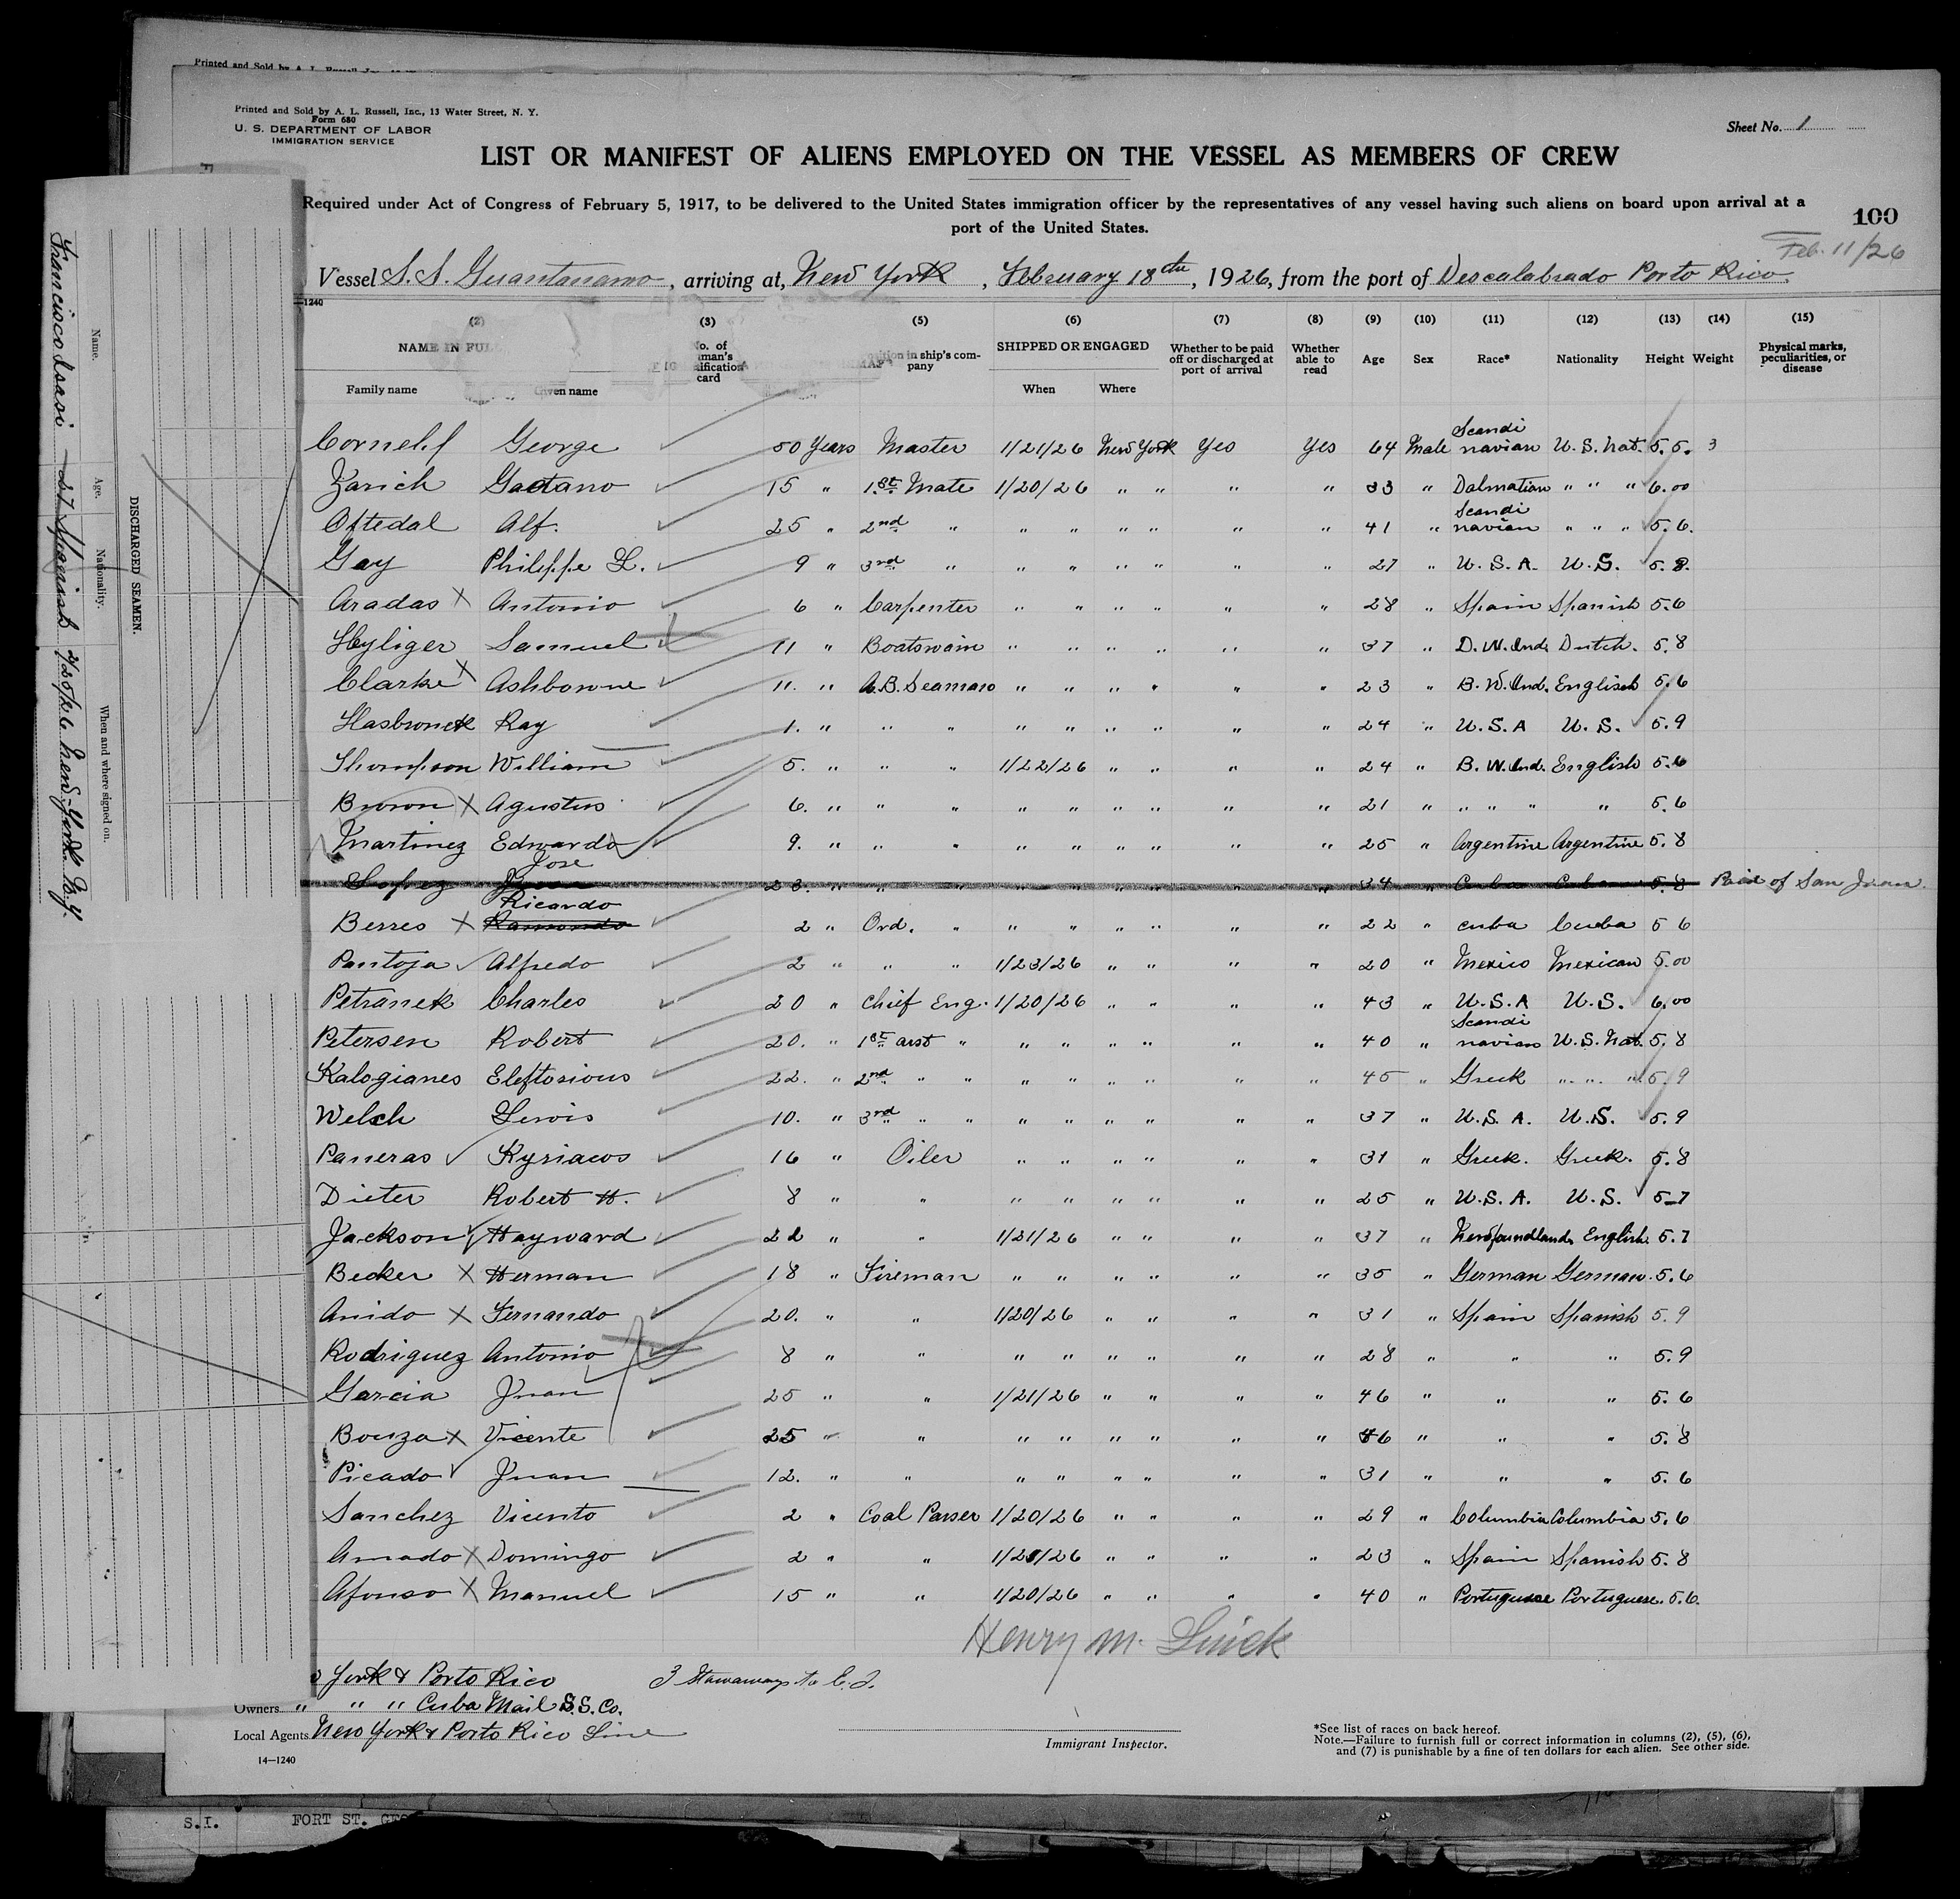 Printed and Sold by A. L. Russell, Inc., 13 Water Street, N. Y.
Form 680
U. S. DEPARTMENT OF LABOR
IMMIGRATION SERVICE
Sheet No. 1
LIST OR MANIFEST OF ALIENS EMPLOYED ON THE VESSEL AS MEMBERS OF CREW
Required under Act of Congress of February 5, 1917, to be delivered to the United States immigration officer by the representatives of any vessel having such aliens on board upon arrival at a
port of the United States.
100
Feb. 11/26
Vessel S. S. Guantanamo, arriving at, New York, February 18th, 1926, from the port of Descalabrado Porto Rico
1240
(2) (3) (5) (6) (7) (8) (9) (10) (11) (12) (13) (14) (15)
NAME IN FUL
Family name Given name
No. of
card
ition in ship's company
SHIPPED OR ENGAGED
When Where
Whether to be paid off or discharged at port of arrival
Whether able to read
Age Sex Race* Nationality Height Weight
Physical marks, peculiarities, or disease
Cornehl George 50 Years Master 1/21/26 New York Yes Yes 64 Male Scandinavian U. S. Nat. 5.5. 3
Zarich Gaetano 15 " 1st Mate 1/20/26 " " " " 33 " Dalmatian " " " 6.00
Oftedal Alf. 25 " 2nd " " " " " " " 41 " Scandinavian " " " 5.6.
Gay Philippe L. 9 " 3rd " " " " " " " 27 " U. S. A. U. S. 5.8.
Aradas X Antonio 6 " Carpenter " " " " " " 28 " Spain Spanish 5.6
Heyliger Samuel 11 " Boatswain " " " " " " 37 " D. W. Ind. Dutch. 5.8
Clarke X Ashbowne 11. " A.B. Seaman " " " " " " 23 " B. W. Ind. English 5.6
Hasbrouck Ray 1. " " " " " " " " " 24 " U. S. A U. S. 5.9
Thompson William 5. " " " 1/22/26 " " " " 24 " B. W. Ind. English 5.6
Brown X Agustus 6. " " " " " " " " " 21 " " " " " 5.6
Martinez Edwardo 9. " " " " " " " " " 25 " Argentine Argentine 5.8
Lopez Jose 23. " " " " " " " " " 34 " Cuba Cuban 5.8 Paid of San Juan.
Berres X Ricardo Ramondo 2 " Ord. " " " " " " " 22 " Cuba Cuba 5 6
Pantoja Alfredo 2 " " " 1/23/26 " " " " 20 " Mexico Mexican 5.00
Petranek Charles 20 " Chief Eng. 1/20/26 " " " " 43 " U. S. A U. S. 6.00
Petersen Robert 20. " 1st asst " " " " " " " 40 " Scandinavian U. S. Nat. 5.8
Kalogianes Eleftosious 22. " 2nd " " " " " " " " 45 " Greek " " " 5.9
Welch Lewis 10. " 3rd " " " " " " " " 37 " U. S. A. U. S. 5.9
Paneras Kyriacos 16 " Oiler " " " " " " 31 " Greek. Greek. 5.8
Dieter Robert H. 8 " " " " " " " " 25 " U. S. A. U. S. 5-7
Jackson Hayward 22 " " 1/21/26 " " " " 37 " Newfoundland English. 5.7
Becker X Herman 18 " Fireman " " " " " " 35 " German German. 5.6
Anido X Fernando 20. " " 1/20/26 " " " " 31 " Spain Spanish 5.9
Rodriguez Antonio 8 " " " " " " " " 28 " " " 5.9
Garcia Juan 25 " " 1/21/26 " " " " 46 " " " 5.6
Bouza X Vicente 25 " " " " " " " " 46 " " " 5.8
Picado Juan 12. " " " " " " " " 31 " " " 5.6
Sanchez Vicento 2 " Coal Passer 1/20/26 " " " " 29 " Columbia Columbia 5.6
Amado X Domingo 2 " " 1/21/26 " " " " 23 " Spain Spanish 5.8
Afonso X Manuel 15 " " 1/20/26 " " " " 40 " Portuguese Portuguese. 5.6.
Henry M.
York & Porto Rico
3 Stowaways to E. I.
Owners " " " Cuba Mail S.S. Co.
Local Agents New York & Porto Rico Line
14—1240
Immigrant Inspector.
*See list of races on back hereof.
Note.—Failure to furnish full or correct information in columns (2), (5), (6),
and (7) is punishable by a fine of ten dollars for each alien. See other side.
DISCHARGED SEAMEN.
Name. Age. Nationality. When and where signed on.
Francisco Isasi Spanish New-York. N.Y.
S.I. FORT ST. GEO